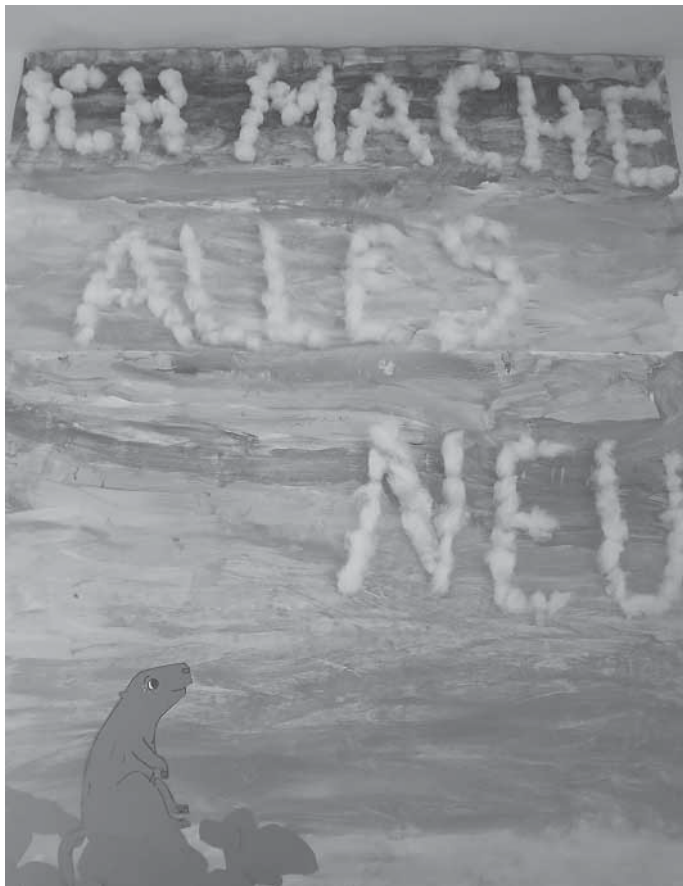 ICH MACHE
ALLES
NEU